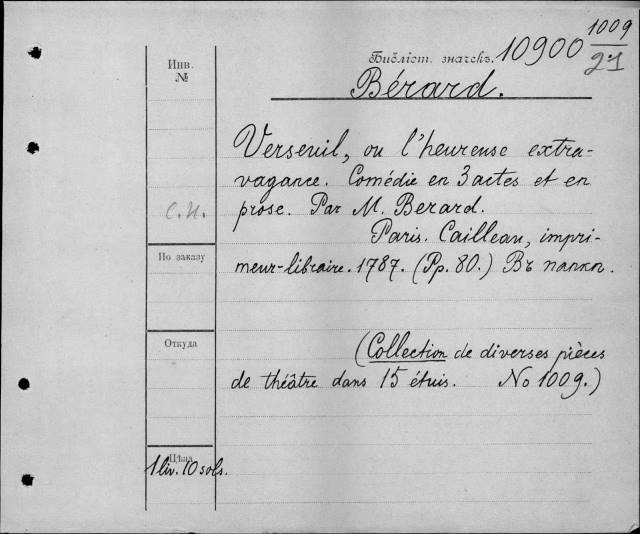 Инв.
№
Библіот. значекъ. 10900 1009/21
Bérard.
Verseuil, ou l'heureuse extra-
vagance. Comédie en 3 actes et en
prose. Par M. Berard.
С.И.
Paris. Cailleau, impri-
meur-libraire. 1787. (Pp. 80.) Въ папкѣ.
По заказу
Откуда
(Collection de diverses pièces
de théâtre dans 15 étuis. No 1009.)
Цѣна
1 liv. 10 sols.